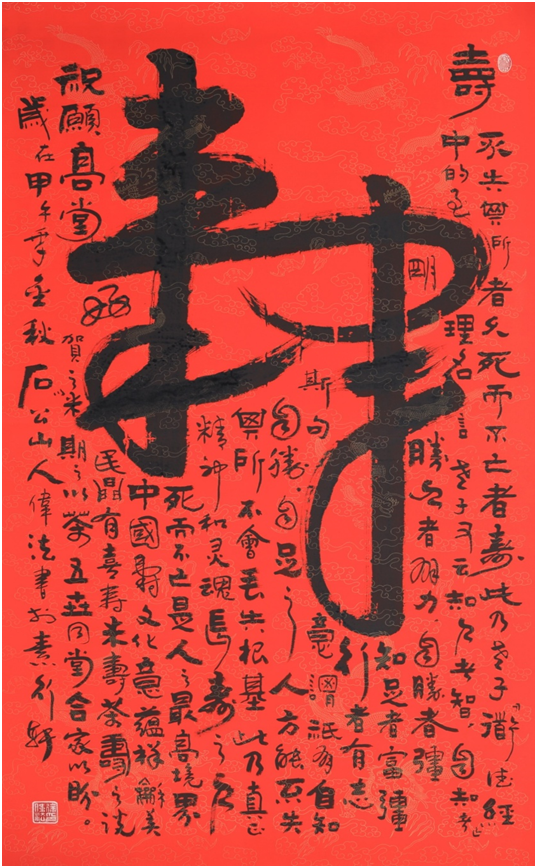 壽
壽
不失其所者久死而不亡者壽此乃老子道德經
中的至理名言老子又云知人者智自知者
明勝人者有力自勝者彊
知足者富彊
行者有志
斯句意謂祇有自知
自勝自足之人方能不失
其所不會丟失根基此乃真正
精神和灵魂長壽之人
死而不亡是人之最高境界
中國壽文化意蘊祥龢美
民間有喜壽米壽茶壽之說
賀之米期之以茶五世同堂合家以盼。
祝願高堂
歲在甲午年金秋石公山人偉法書於素行軒